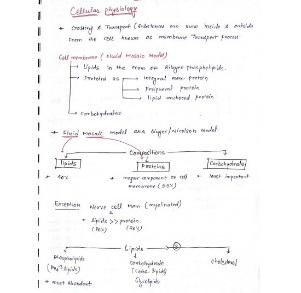 Cellular physiology
* Crossing & Transport (Substances can move inside & outside
from the cell known as membrane Transport process
Cell membrane (Fluid Mosaic Model)
Lipids in the form of Bilayer phospholipids.
Proteins as
Integral mem. protein
Peripheral protein
lipid anchored protein
Carbohydrates
* Fluid Mosaic Model aka Singer/Nicolson model
Compositions
Lipids Proteins Carbohydrates
* 40% * major component of cell * Most important
membrane (55%)
Exception Nerve cell mem (myelinated)
* Lipids >> protein
Lipids
Phospholipids Carbohydrate Cholesterol
lipids)
Glycolipids
* most abundant